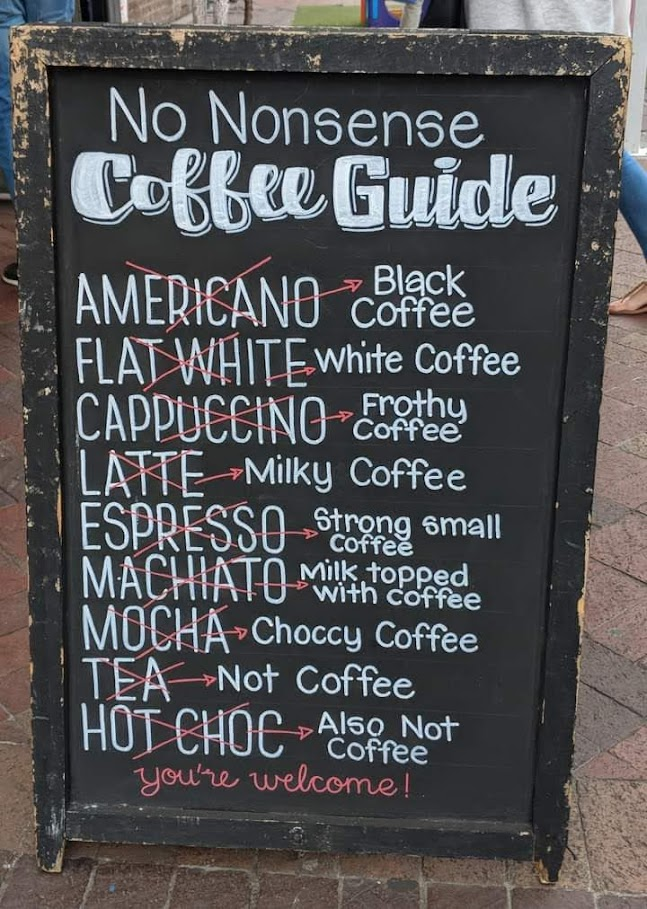 No Nonsense
Coffee Guide
AMERICANO → Black
Coffee
FLAT WHITE → white Coffee
CAPPUCCINO → Frothy
Coffee
LATTE → Milky Coffee
ESPRESSO → Strong small
coffee
MACHIATO → Milk topped
with coffee
MOCHA → Choccy Coffee
TEA → Not Coffee
HOT CHOC → Also Not
Coffee
you're welcome!